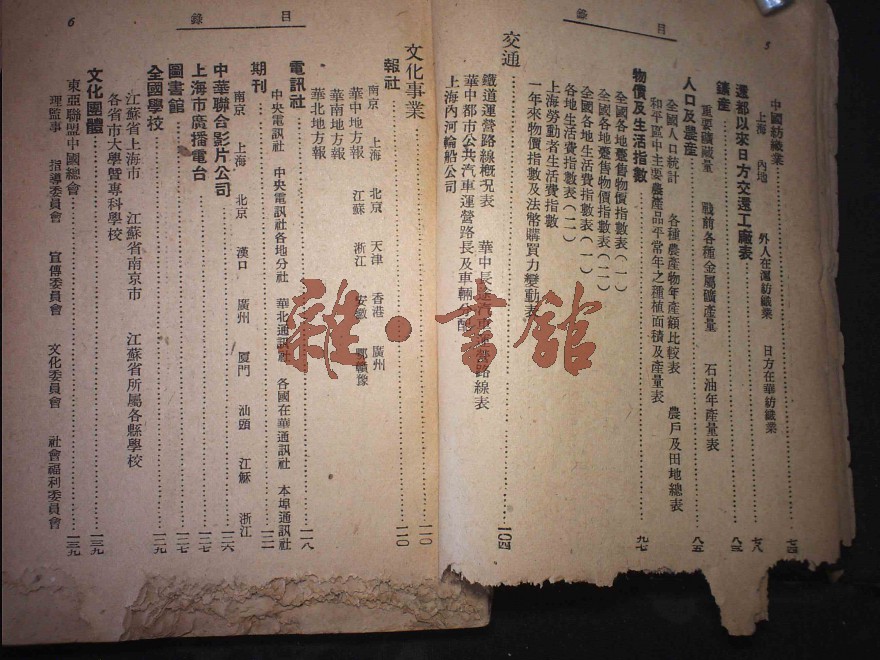 目 錄
5
中國紡織業
上海 內地 外人在滬紡織業 日方在華紡織業 七四
還都以來日方交還工廠表 七八
鑛產 八三
重要鑛藏量 戰前各種金屬礦產量 石油年產量表
人口及農產 八五
全國人口統計 各種農產物年產額比較表 農戶及田地總表
和平區中主要農產品平常年之種植面積及產量表
物價及生活指數 九七
全國各地躉售物價指數表(一)
全國各地躉售物價指數表(二)
全國各地生活費指數表(一)
各地生活費指數表(二)
上海勞動者生活費指數
一年來物價指數及法幣購買力變動表
交通 一〇四
鐵道運營路線概況表 華中長途汽車運營路線表
華中都市公共汽車運營路長及車輛分配
上海內河輪船公司
目 錄
6
文化事業 一一〇
報社 一一〇
南京 上海 北京 天津 香港 廣州
華中地方報 江蘇 浙江 安徽 鄂贛豫
華南地方報
華北地方報
電訊社 一一八
中央電訊社 中央電訊社各地分社 華北通訊社 各國在華通訊社 本埠通訊社
期刊 一二一
南京 上海 北京 漢口 廣州 廈門 汕頭 江蘇 浙江
中華聯合影片公司 一二六
上海市廣播電台 一二七
圖書館 一二七
全國學校 一二九
江蘇省上海市 江蘇省南京市 江蘇省所屬各縣學校
各省市大學暨專科學校
文化團體 一三九
東亞聯盟中國總會 一三九
理監事 指導委員會 宣傳委員會 文化委員會 社會福利委員會
雜·書館